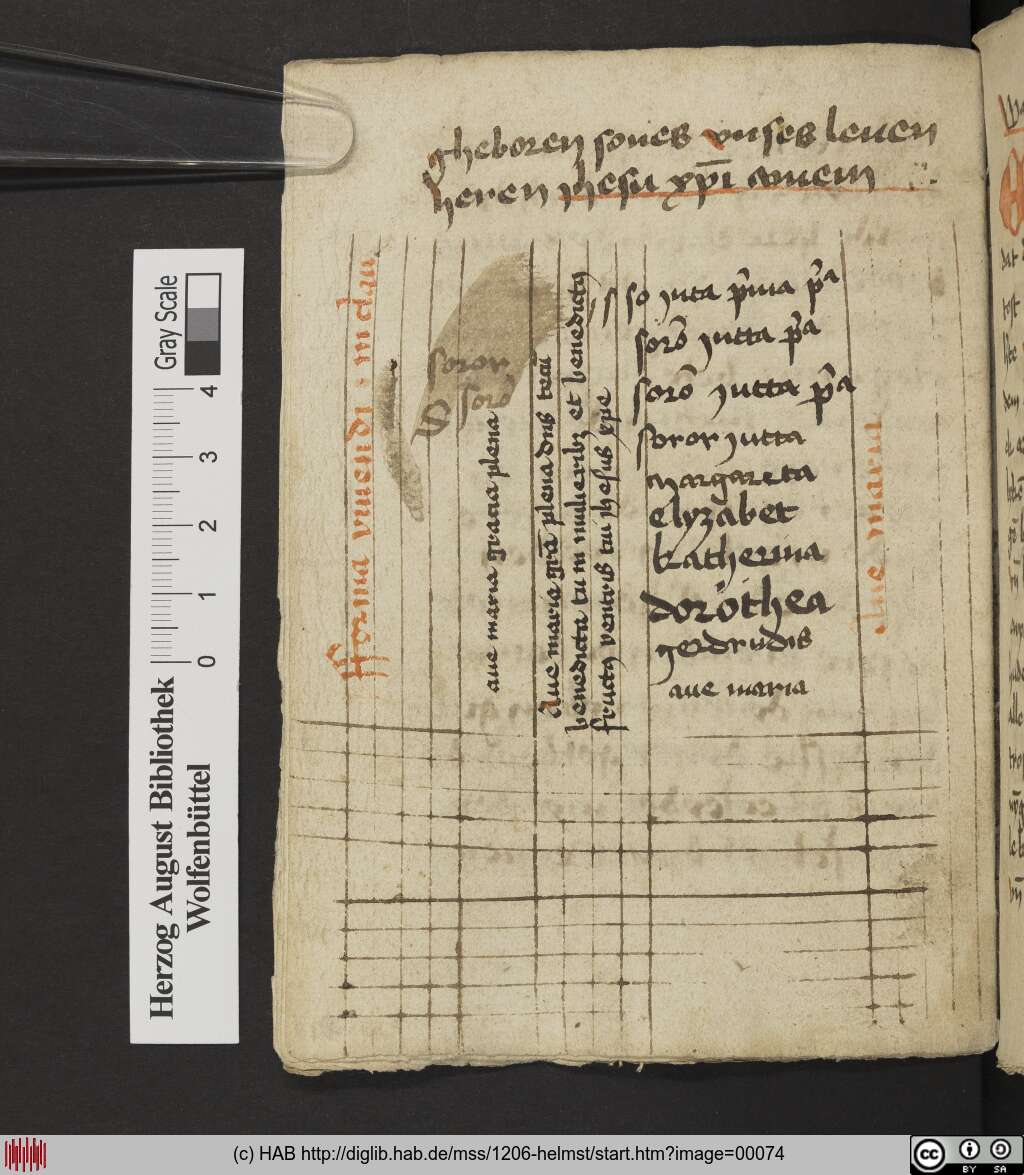 gheboren sones vnses leuen
heren jhesu xp̄i amem
fforma viuendi · in clau
soror
S sorō
aue maria gracia plena
Aue maria grā plena dn̄s tecū
benedicta tu in mulieribꝫ et benedictꝰ
fructꝰ ventris tui jhesus xpe
so jutta p̄ma p̄a
sorō jutta p̄a
sorō jutta p̄a
soror jutta
margareta
elyzabet
katherina
dorothea
gerdrudis
aue maria
Aue maria
Gray Scale
0 1 2 3 4
Herzog August Bibliothek
Wolfenbüttel
(c) HAB http://diglib.hab.de/mss/1206-helmst/start.htm?image=00074
cc
BY SA